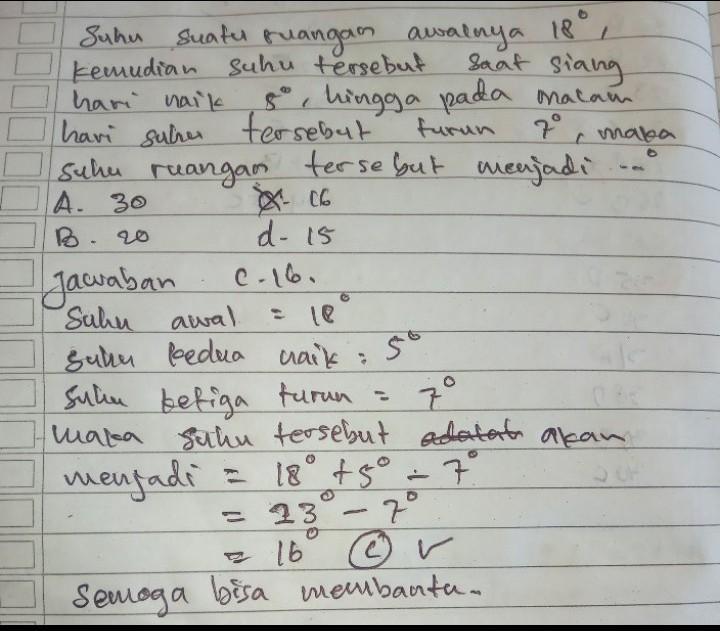 Suhu suatu ruangan awalnya 18°,
kemudian suhu tersebut saat siang
hari naik 5°, hingga pada malam
hari suhu tersebut turun 7°, maka
suhu ruangan tersebut menjadi ...°
A. 30 C. 16
B. 20 d. 15
Jawaban C. 16.
Suhu awal = 18°
suhu kedua naik = 5°
suhu ketiga turun = 7°
Maka suhu tersebut adalah akan
menjadi = 18° + 5° - 7°
= 23° - 7°
= 16° (C) ✓
Semoga bisa membantu.